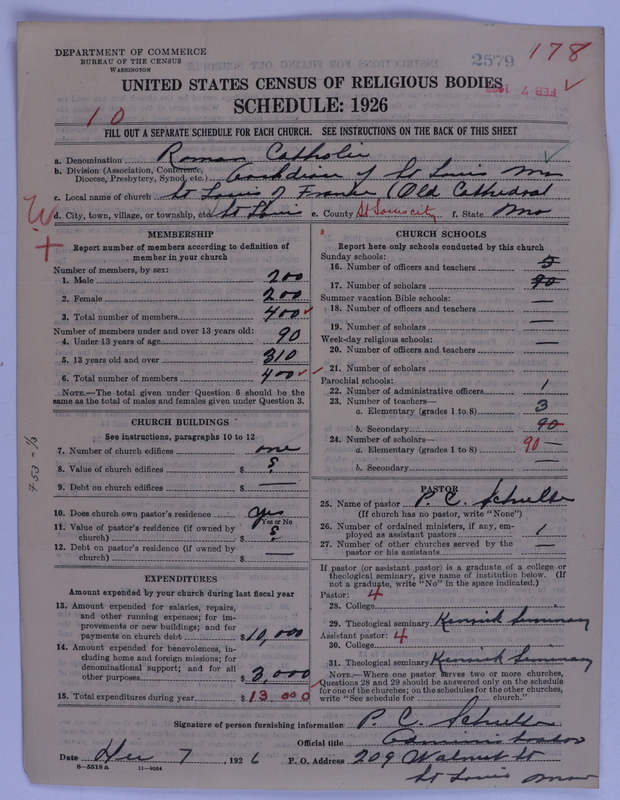 DEPARTMENT OF COMMERCE
BUREAU OF THE CENSUS
WASHINGTON
2579
178
FEB 7
UNITED STATES CENSUS OF RELIGIOUS BODIES
SCHEDULE: 1926
10
FILL OUT A SEPARATE SCHEDULE FOR EACH CHURCH. SEE INSTRUCTIONS ON THE BACK OF THIS SHEET
a. Denomination Roman Catholic
b. Division (Association, Conference, Diocese, Presbytery, Synod, etc.) Archdioc of St Louis Mo
c. Local name of church St Louis of France (Old Cathedral
d. City, town, village, or township, etc. St Louis e. County St Louis city f. State Mo
MEMBERSHIP
Report number of members according to definition of
member in your church
Number of members, by sex:
1. Male 200
2. Female 200
3. Total number of members 400
Number of members under and over 13 years old:
4. Under 13 years of age 90
5. 13 years old and over 310
6. Total number of members 400
NOTE.—The total given under Question 6 should be
same as the total of males and females given under Question 3.
CHURCH BUILDINGS
See instructions, paragraphs 10 to 12
7. Number of church edifices one
8. Value of church edifices $ ?
9. Debt on church edifices $ —
10. Does church own pastor's residence yes
Yes or No
11. Value of pastor's residence (if owned by
church) $ ?
12. Debt on pastor's residence (if owned by
church) $ —
EXPENDITURES
Amount expended by your church during last fiscal year
13. Amount expended for salaries, repairs,
and other running expenses; for im-
provements or new buildings; and for
payments on church debt $ 10,000
14. Amount expended for benevolences, in-
cluding home and foreign missions; for
denominational support; and for all
other purposes $ 3,000
15. Total expenditures during year $ 13 000
CHURCH SCHOOLS
Report here only schools conducted by this church
Sunday schools:
16. Number of officers and teachers 5
17. Number of scholars 90
Summer vacation Bible schools:
18. Number of officers and teachers —
19. Number of scholars —
Week-day religious schools: —
20. Number of officers and teachers
21. Number of scholars —
Parochial schools:
22. Number of administrative officers 1
23. Number of teachers—
a. Elementary (grades 1 to 8) 3
b. Secondary 90
24. Number of scholars—
a. Elementary (grades 1 to 8) 90 —
b. Secondary —
PASTOR
25. Name of pastor P. C. Schulte
(If church has no pastor, write "None")
26. Number of ordained ministers, if any, em-
ployed as assistant pastors 1
27. Number of other churches served by the
pastor or his assistants —
If pastor (or assistant pastor) is a graduate of a college or
theological seminary, give name of institution below. (If
not a graduate, write "No" in the space indicated.)
Pastor: 4
28. College
29. Theological seminary Kenrick Seminary
Assistant pastor: 4
30. College
31. Theological seminary Kenrick Seminary
NOTE.—Where one pastor serves two or more churches,
Questions 28 and 29 should be answered only on the schedule
for one of the churches; on the schedules for the other churches,
write "See schedule for church."
Signature of person furnishing information P. C. Schulte
Official title Administrator
Date Dec 7, 1926 P. O. Address 209 Walnut St
8—5519 a 11—9034 St Louis Mo